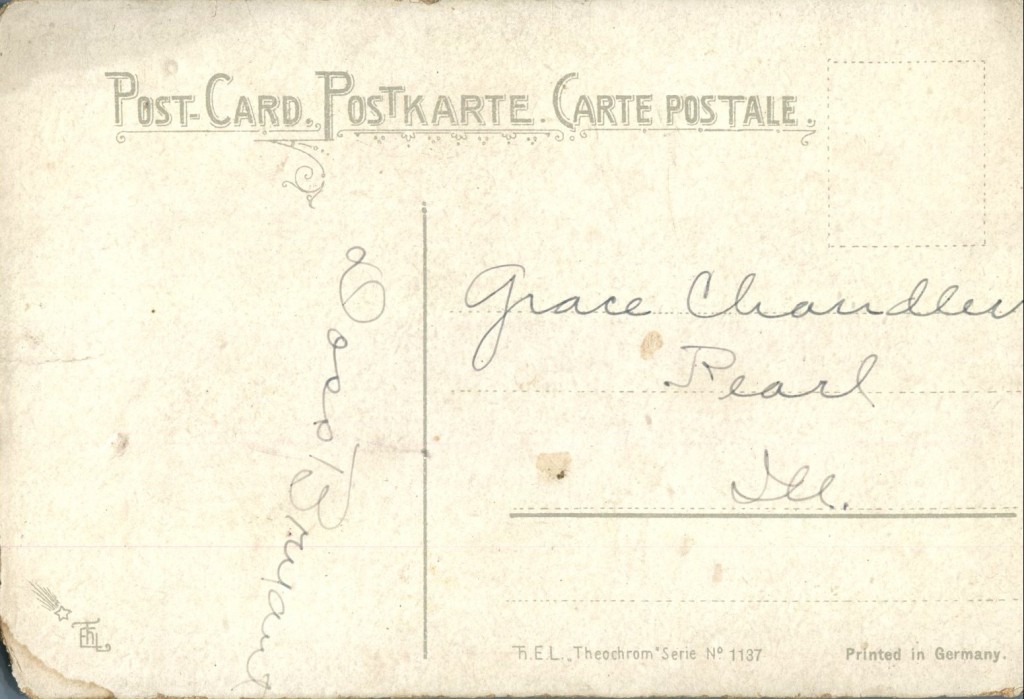 POST-CARD. POSTKARTE. CARTE POSTALE.
Bryant
Grace Chandler
Pearl
Ill.
Th.E.L. „Theochrom" Serie Nº 1137
Printed in Germany.